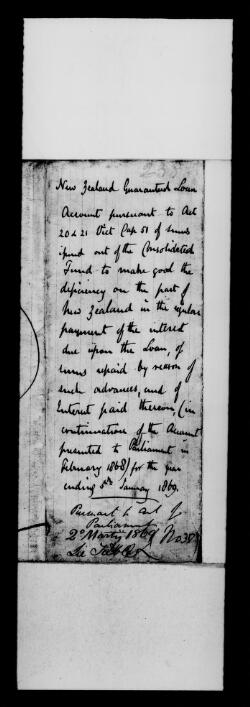 New Zealand Guaranteed Loan
Account pursuant to Act
20 & 21 Vict Cap 51 of sums
ipued out of the Consolidated
Fund to make good the
deficiency on the part of
New Zealand in the regular
payment of the interest
due upon the Loan, of
sums repaid by reason of
such advances, and of
Interest paid thereon (in
continuation of the Account
presented to Parliament in
February 1868) for the year
ending 5th January 1869.
Pursuant to Act of
Parliament
2d March 1869 No 38